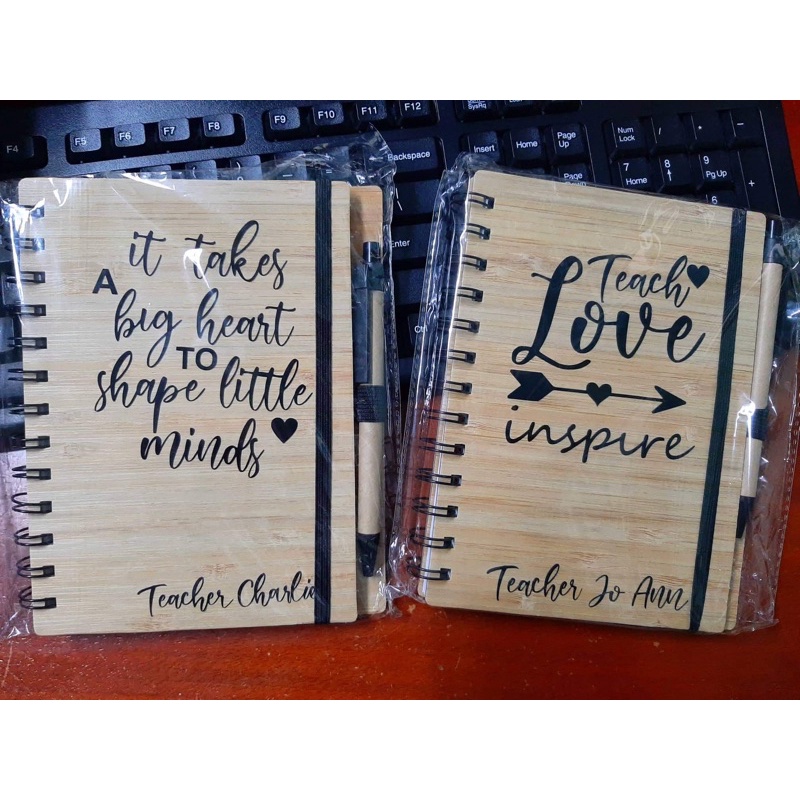 F4 F5 F6 F7 F8 F9 F10 F11 F12
SysRq
Backspace
Insert Home Page Up
Num Lock / * -
7 Home 8 9 PgUp +
Page Down
6
Enter
Ctrl
it takes
A
big heart
TO
shape little
minds
Teacher Charlie
Teach
Love
inspire
Teacher Jo Ann